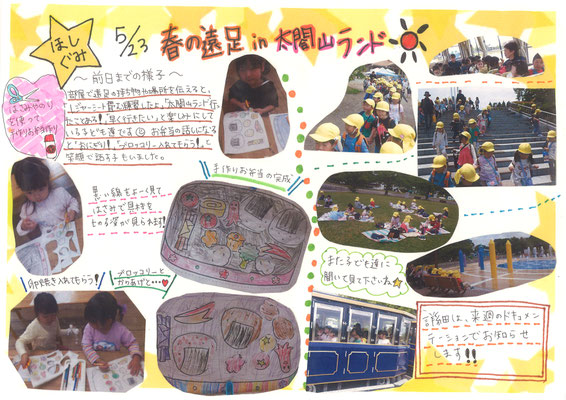 ほし
ぐみ
5/23 春の遠足 in 太閤山ランド
～前日までの様子～
部屋で遠足の持ち物や場所を伝えると、
「太閤山ランド行っ
たことある!」「早く行きたい」と楽しみにして
いる子ども達です☺ お弁当の話になる
と“おにぎり!”“ブロッコリー入れてもらう!”と
笑顔で話す子もいました。
はさみやのり
を使って
手作りお弁当作り
黒い線をよーく見て
はさみで具材を
切る姿が見られます!
手作りお弁当の完成
卵焼き入れてもらう!
ブロッコリーと
からあげと…♥
また子ども達に
聞いて見て下さいね☆
詳細は、来週のドキュメン
テーションでお知らせ
します!!